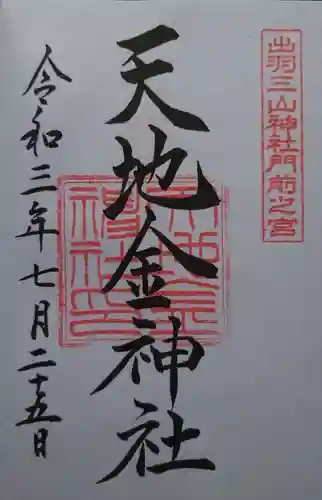 出羽三山神社門前之宮
天地金神社
天地金神社印
令和三年七月二十五日